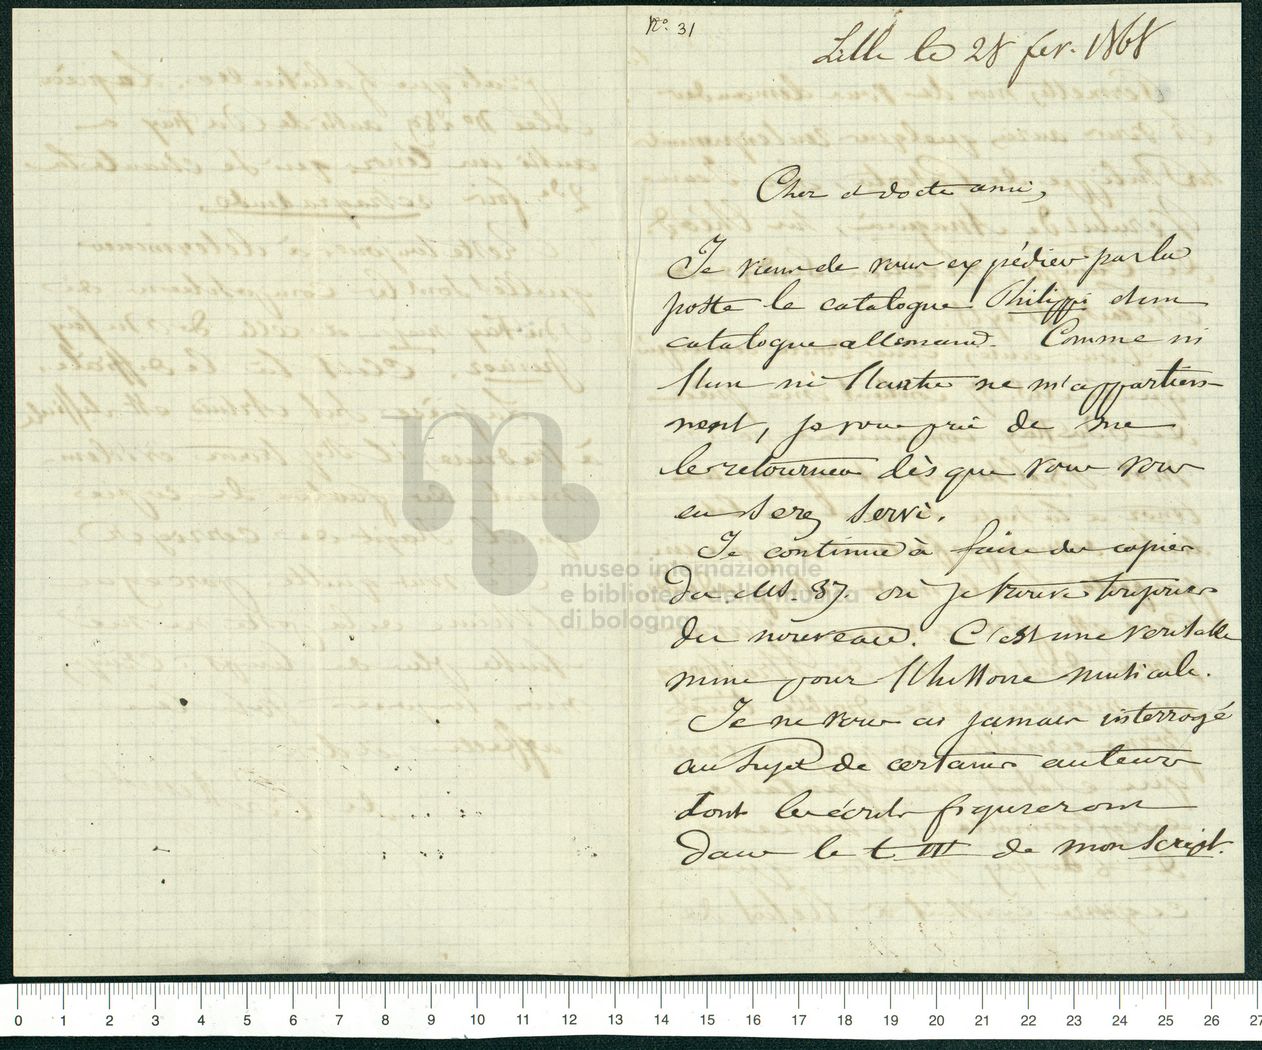 N.° 31
Lille le 28 fév. 1868
Cher et docte ami,
Je viens de vous expédier par la
poste le catalogue Philippi et un
catalogue allemand. Comme ni
l'un ni l'autre ne m'appartien-
nent, je vous prie de me
les retourner dès que vous vous
en serez servi.
Je continue à faire des copies
du Ms. 37. où je trouve toujours
du nouveau. C'est une veritable
mine pour l'histoire musicale.
Je ne vous ai jamais interrogé
au sujet de certains auteurs
dont les écrits figureront
dans le t. III de mon Script.
museo internazionale
e biblioteca della musica
di bologna
0 1 2 3 4 5 6 7 8 9 10 11 12 13 14 15 16 17 18 19 20 21 22 23 24 25 26 27